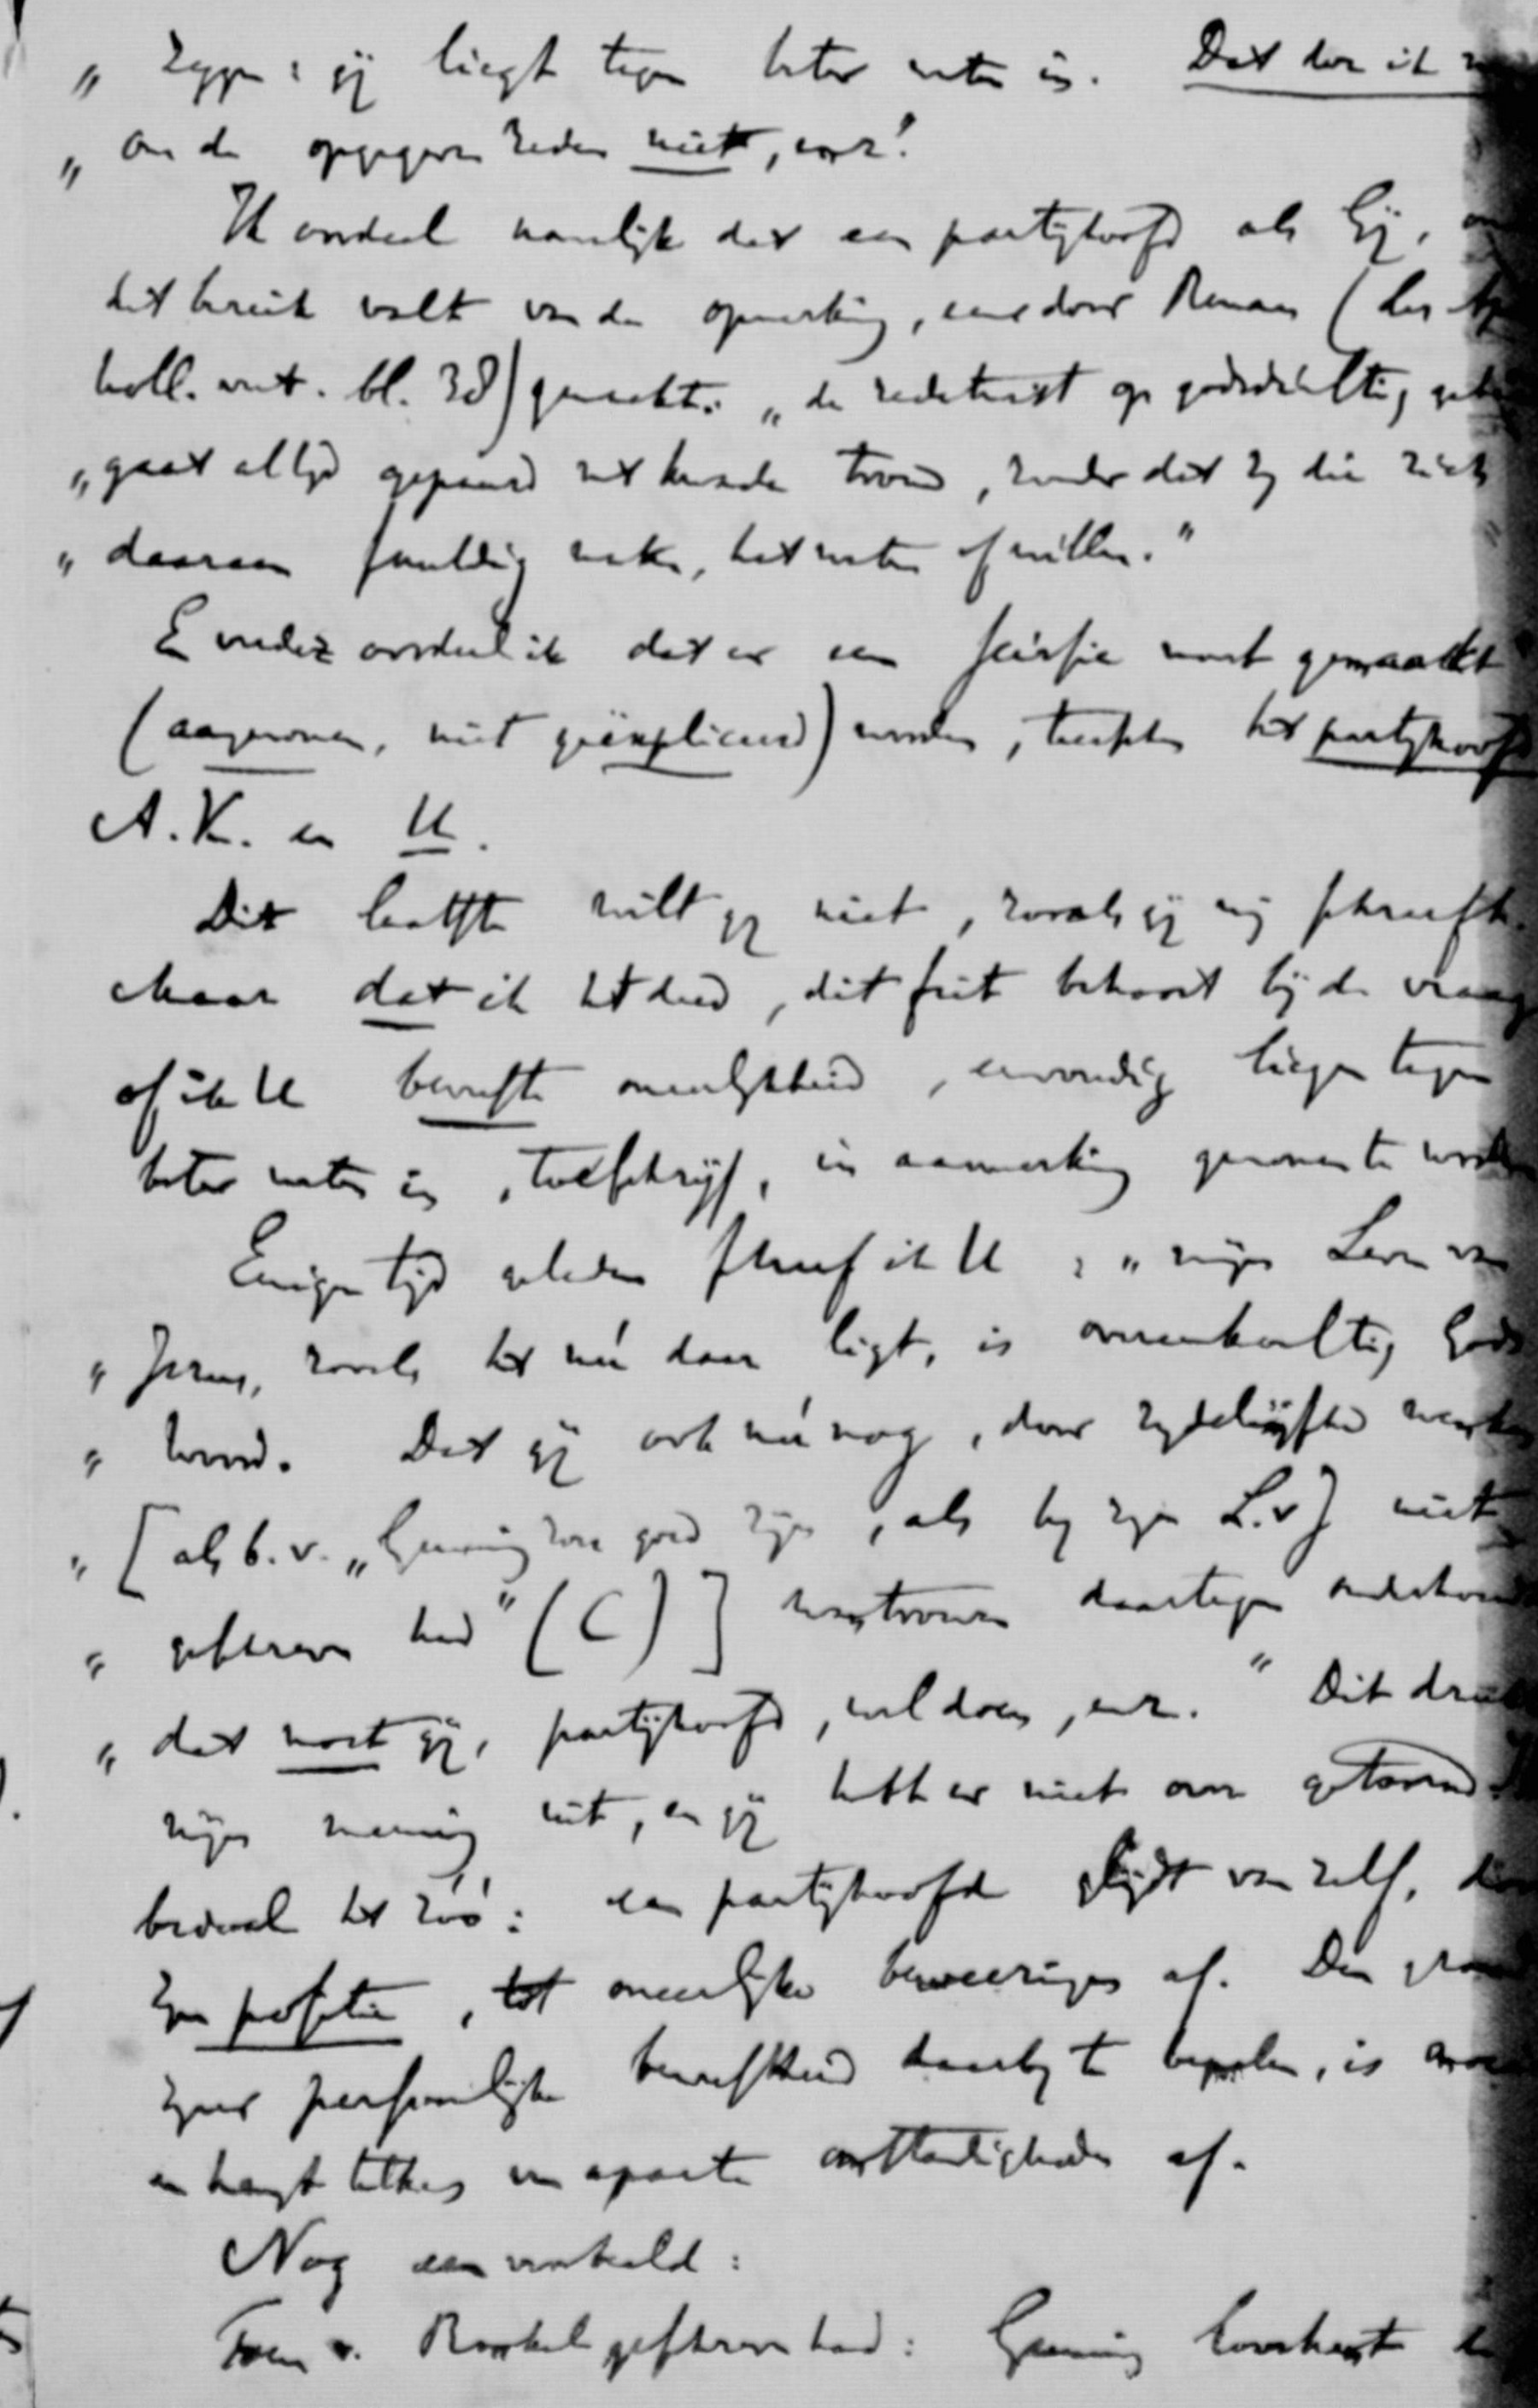 „ zeggen: gij liegt tegen beter weten in. Dat doe ik
„ om de opgegeven reden niet, enz!
Ik oordeel namelijk dat een partijhoofd als Gij,
het bereik valt van de opmerking, eens door Renan (les
holl. vert. bl. 38) gemaakt: „de redetwist op godsdienstig
„gaat altijd gepaard met kwade trouw, zonder dat zij die zich
„ daaraan schuldig maken, het weten of willen."
Evender oordeel ik dat er een scissie moet gemaakt
(aangenomen, niet geëxpliceerd) worden, tusschen het partijhoofd
A.K. en U.
Dit laatste wilt gij niet, zooals gij mij schreeft.
Maar dat ik het deed, dit feit behoort bij de vraag
of ik U bewuste oneerlijkheid, eenvoudig liegen tegen
beter weten in, toeschrijf, in aanmerking genomen te worden
Eenigen tijd geleden schreef ik U: „mijn Leven van
„ Jezus, zooals het nú daar ligt, is onwankelbaar Gods
„ woord. Dat gij ook nú nog, door zijdelingsche
„ [als b.v. „Gunning zou goed zijn, als hij zijn L.v J niet
„ geschreven had" (C)] wantrouwen daartegen onderhoudt
„ dat moet gij, partijhoofd, wel doen, enz." Dit drukt
mijn meening uit, en gij hebt er niet over getoornd.
bedoel het zóó: een partijhoofd glijdt van zelf, door
zijn positie, tot oneerlijke beweeringen af. Den graad
zijner persoonlijke bewustheid daarbij te bepalen, is
en hangt telkens van aparte omstandigheden af.
Nog een voorbeeld:
Toen v. Ronkel geschreven had: Gunning loochent de